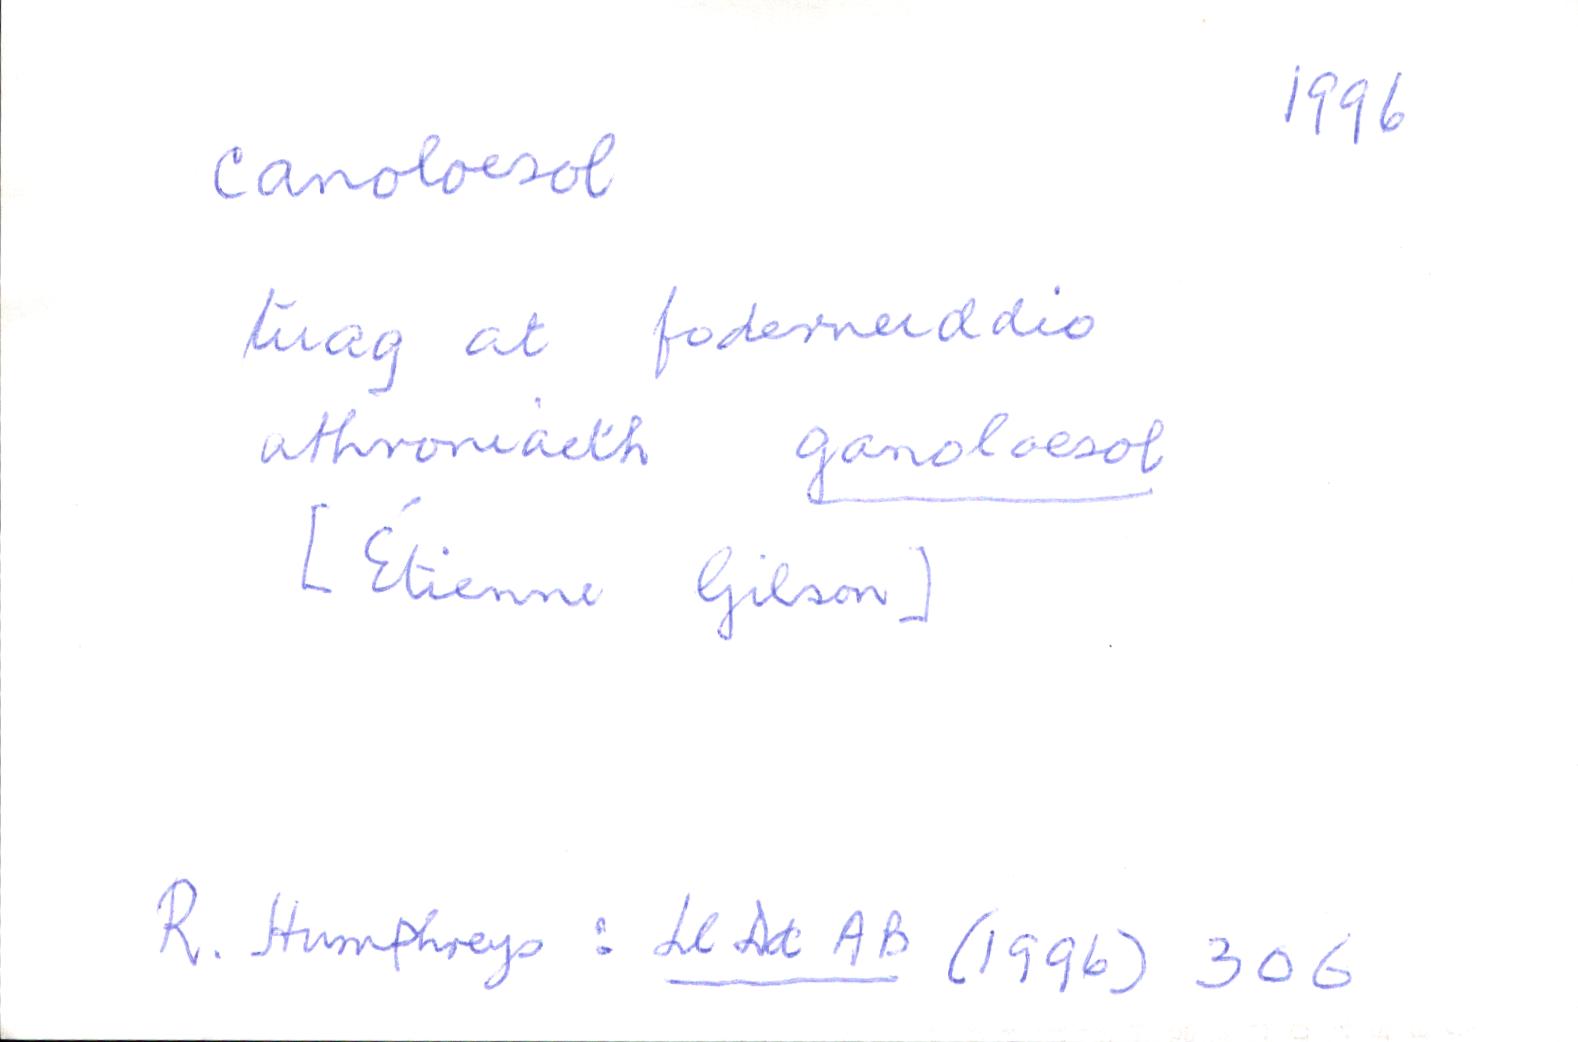 1996
canoloesol
tuag at foderneiddio
athroniaeth ganoloesol
[Étienne Gilson]
R. Humphreys : Ll Dd AB (1996) 306